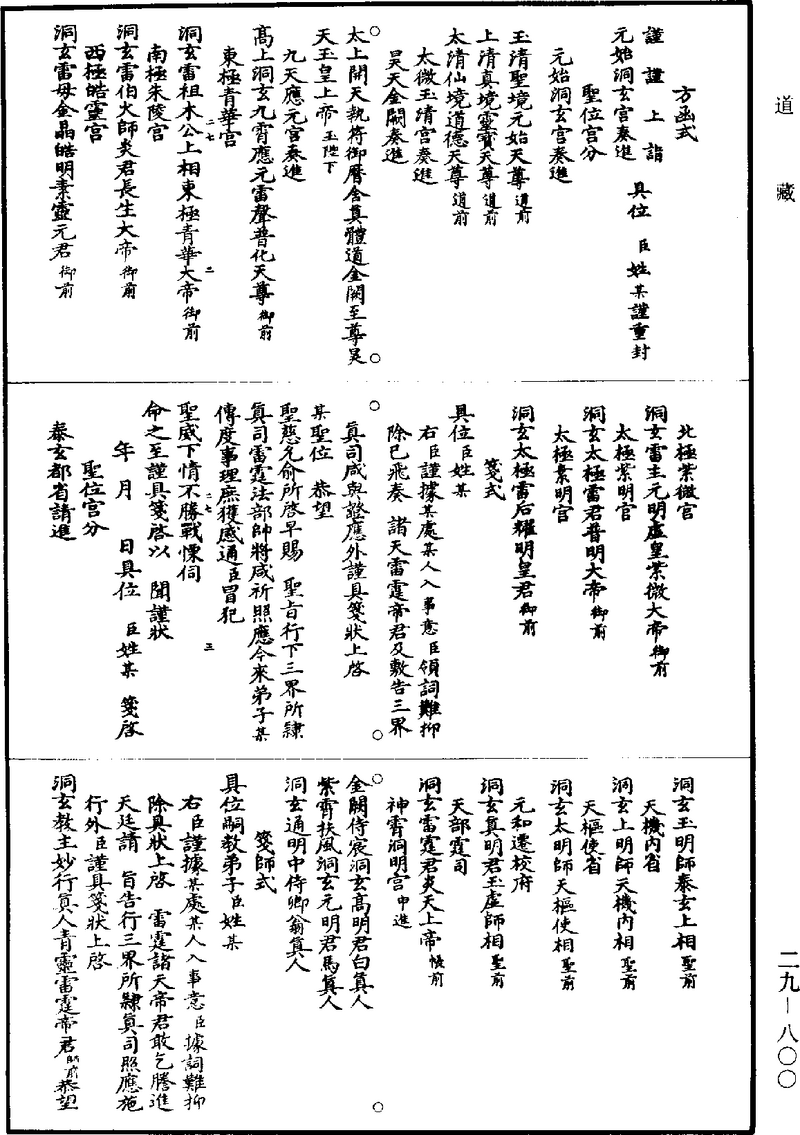 道藏
方函式
謹謹上詣
元始洞玄宮奏進　具位　臣　姓　某謹重封
聖位宮分
元始洞玄宮奏進
玉清聖境元始天尊道前
上清真境靈寶天尊道前
太清仙境道德天尊道前
太微玉清宮奏進
昊天金闕奏進
太上開天執符御曆含真體道金闕至尊昊
天玉皇上帝玉陛下
九天應元宮奏進
高上洞玄九霄應元雷聲普化天尊御前
東極青華宮
洞玄雷祖木公上相東極青華大帝御前
二七　二
南極朱陵宮
洞玄雷伯火師炎君長生大帝御前
西極皓靈宮
洞玄雷母金晶皓明素靈元君御前
北極紫微宮
洞玄雷主元明虛皇紫微大帝御前
太極紫明宮
洞玄太極雷君普明大帝御前
太極素明宮
洞玄太極雷后耀明皇君御前
箋式
具位臣姓某
右臣謹據某處某人入事意臣領詞難抑
除已飛奏　諸天雷霆帝君及敷告三界
真司咸與證應外謹具箋狀上啓
某聖位　恭望
聖慈允俞所啓早賜　聖旨行下三界所隸
真司雷霆法部帥將咸祈照應今來弟子某
傳度事理庶獲感通臣冒犯
聖威下情不勝戰慄伺
二七　三
命之至謹具箋啓以　聞謹狀
年　月　日具位　臣姓某　箋啓
聖位宮分
泰玄都省請進
洞玄玉明師泰玄上相聖前
天機內省
洞玄上明師天機內相聖前
天樞使省
洞玄太明師天樞使相聖前
元和遷校府
洞玄真明君玉虛師相聖前
天部霆司
洞玄雷霆君炎天上帝帳前
神霄洞明宮申進
金闕侍宸洞玄高明君白真人
紫霄扶風洞玄元明君馬真人
洞玄通明中侍卿翁真人
箋師式
具位嗣教弟子臣姓某
右臣謹據某處某人入事意臣據詞難抑
除具狀上啓　雷霆諸天帝君敢乞騰進
天廷請　旨告行三界所隸真司照應施
行外臣謹具箋狀上啓
洞玄教主妙行真人青靈雷霆帝君御前恭望
二九－八〇〇